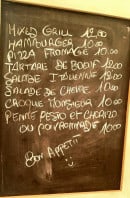 MIXED GRILL 12.00
HAMBURGER 10.00
PIZZA FROMAGE 10.00
TARTARE DE BOEUF 12.00
SALADE ITALIENNE 12.00
SALADE DE CHEVRE 10.00
CROQUE MONSIEUR 10.00
PENNE PESTO ET CHORIZO
OU 10.00
BON APPETIT